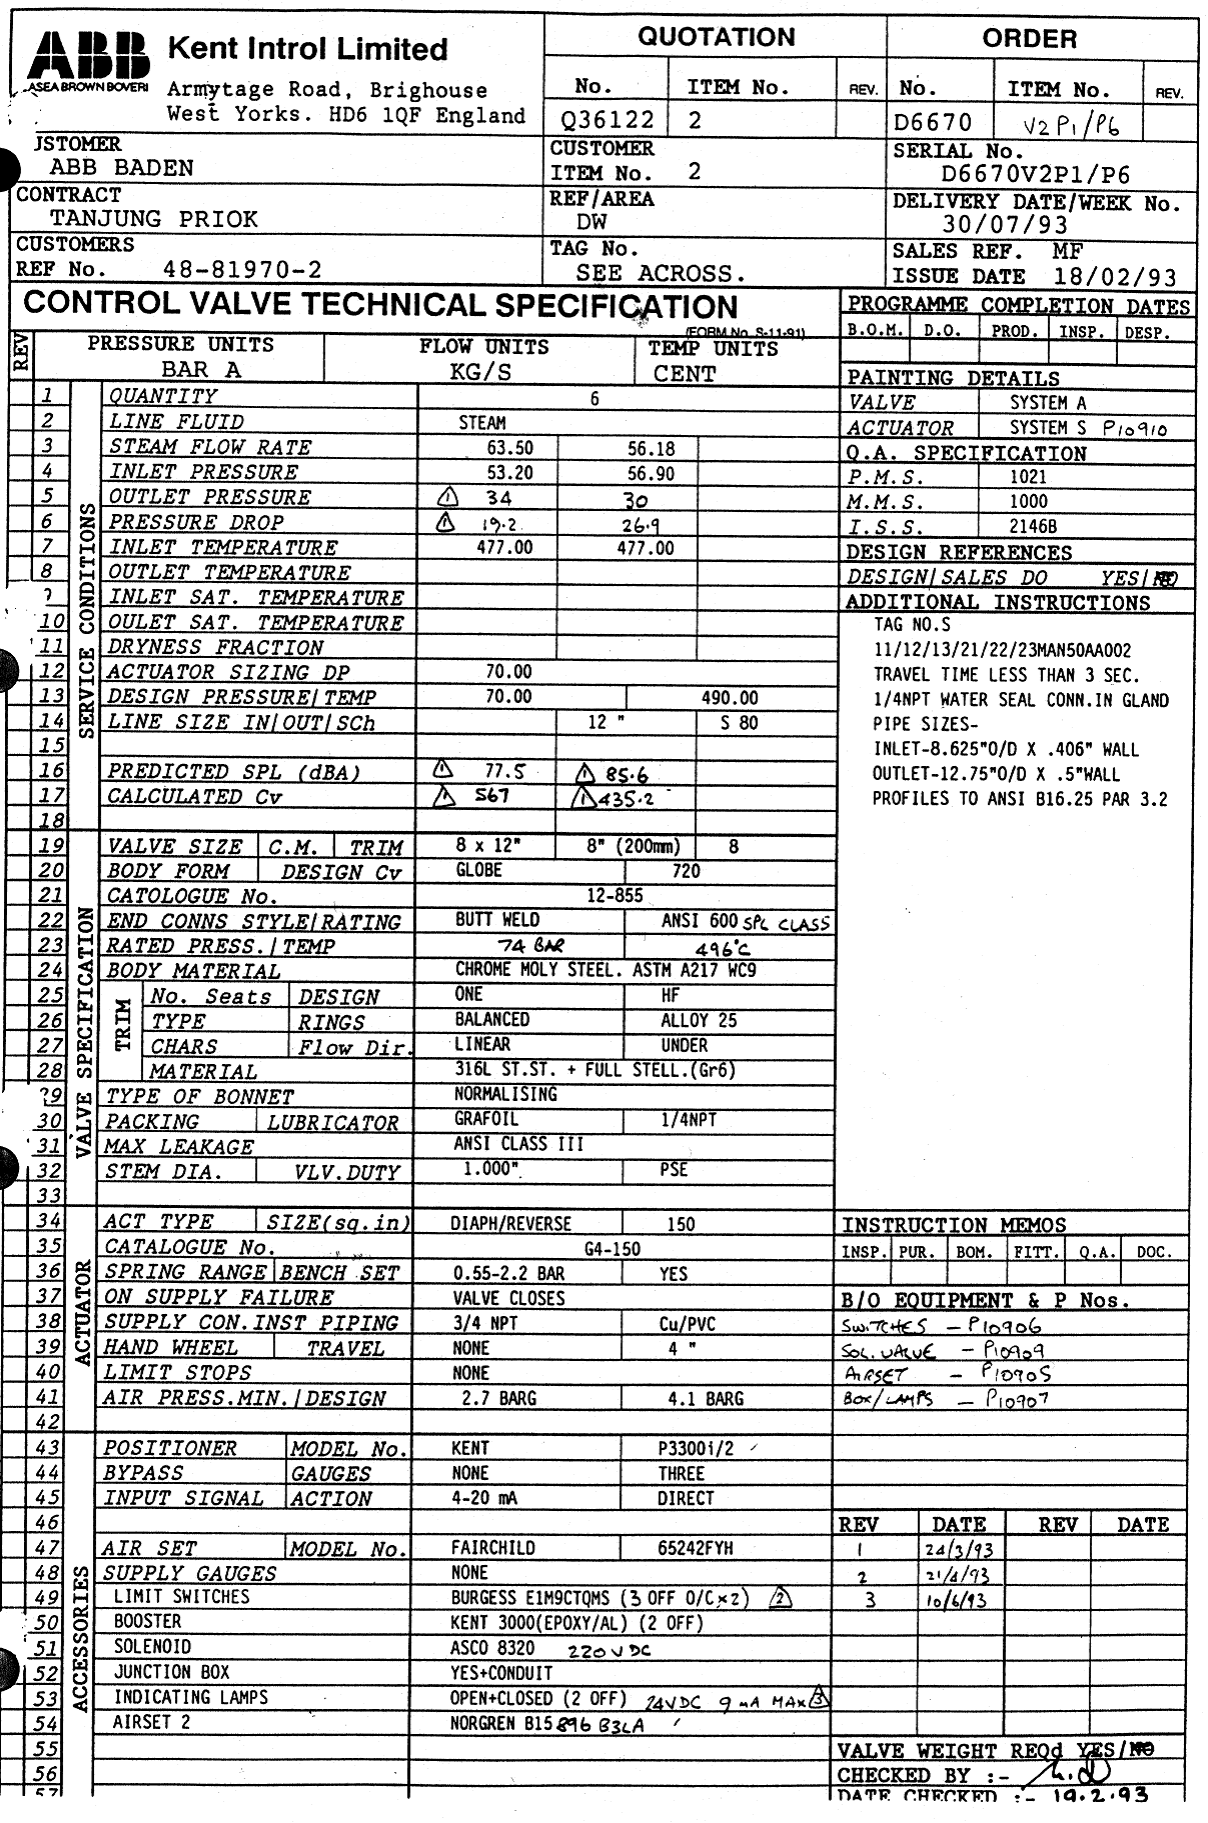 ABB Kent Introl Limited
ASEA BROWN BOVERI
Armytage Road, Brighouse
West Yorks. HD6 1QF England
QUOTATION
No. ITEM No. REV.
Q36122 2
ORDER
No. ITEM No. REV.
D6670 V2P1/P6
JSTOMER
ABB BADEN
CUSTOMER
ITEM No. 2
SERIAL No.
D6670V2P1/P6
CONTRACT
TANJUNG PRIOK
REF/AREA
DW
DELIVERY DATE/WEEK No.
30/07/93
CUSTOMERS
REF No. 48-81970-2
TAG No.
SEE ACROSS.
SALES REF. MF
ISSUE DATE 18/02/93
CONTROL VALVE TECHNICAL SPECIFICATION
(FORM No. S-11-91)
REV
PRESSURE UNITS FLOW UNITS TEMP UNITS
BAR A KG/S CENT
SERVICE CONDITIONS
1 QUANTITY 6
2 LINE FLUID STEAM
3 STEAM FLOW RATE 63.50 56.18
4 INLET PRESSURE 53.20 56.90
5 OUTLET PRESSURE 1 34 30
6 PRESSURE DROP 1 19.2 26.9
7 INLET TEMPERATURE 477.00 477.00
8 OUTLET TEMPERATURE
9 INLET SAT. TEMPERATURE
10 OULET SAT. TEMPERATURE
11 DRYNESS FRACTION
12 ACTUATOR SIZING DP 70.00
13 DESIGN PRESSURE/TEMP 70.00 490.00
14 LINE SIZE IN/OUT/SCh 12 " S 80
15
16 PREDICTED SPL (dBA) 1 77.5 1 85.6
17 CALCULATED Cv 1 567 1 435.2
18
VALVE SPECIFICATION
19 VALVE SIZE C.M. TRIM 8 x 12" 8" (200mm) 8
20 BODY FORM DESIGN Cv GLOBE 720
21 CATOLOGUE No. 12-855
22 END CONNS STYLE/RATING BUTT WELD ANSI 600 SPL CLASS
23 RATED PRESS./TEMP 74 BAR 496°C
24 BODY MATERIAL CHROME MOLY STEEL. ASTM A217 WC9
TRIM
25 No. Seats DESIGN ONE HF
26 TYPE RINGS BALANCED ALLOY 25
27 CHARS Flow Dir. LINEAR UNDER
28 MATERIAL 316L ST.ST. + FULL STELL.(Gr6)
29 TYPE OF BONNET NORMALISING
30 PACKING LUBRICATOR GRAFOIL 1/4NPT
31 MAX LEAKAGE ANSI CLASS III
32 STEM DIA. VLV.DUTY 1.000" PSE
33
ACTUATOR
34 ACT TYPE SIZE(sq.in) DIAPH/REVERSE 150
35 CATALOGUE No. G4-150
36 SPRING RANGE BENCH SET 0.55-2.2 BAR YES
37 ON SUPPLY FAILURE VALVE CLOSES
38 SUPPLY CON.INST PIPING 3/4 NPT Cu/PVC
39 HAND WHEEL TRAVEL NONE 4 "
40 LIMIT STOPS NONE
41 AIR PRESS.MIN./DESIGN 2.7 BARG 4.1 BARG
42
ACCESSORIES
43 POSITIONER MODEL No. KENT P3300i/2
44 BYPASS GAUGES NONE THREE
45 INPUT SIGNAL ACTION 4-20 mA DIRECT
46
47 AIR SET MODEL No. FAIRCHILD 65242FYH
48 SUPPLY GAUGES NONE
49 LIMIT SWITCHES BURGESS E1M9CTQMS (3 OFF O/C x 2) 2
50 BOOSTER KENT 3000(EPOXY/AL) (2 OFF)
51 SOLENOID ASCO 8320 220V DC
52 JUNCTION BOX YES+CONDUIT
53 INDICATING LAMPS OPEN+CLOSED (2 OFF) 24VDC 9 mA MAX 3
54 AIRSET 2 NORGREN B15 896 B3LA
55
56
57
PROGRAMME COMPLETION DATES
B.O.M. D.O. PROD. INSP. DESP.
PAINTING DETAILS
VALVE SYSTEM A
ACTUATOR SYSTEM S P10910
Q.A. SPECIFICATION
P.M.S. 1021
M.M.S. 1000
I.S.S. 2146B
DESIGN REFERENCES
DESIGN/SALES DO YES/NO
ADDITIONAL INSTRUCTIONS
TAG NO.S
11/12/13/21/22/23MAN50AA002
TRAVEL TIME LESS THAN 3 SEC.
1/4NPT WATER SEAL CONN.IN GLAND
PIPE SIZES-
INLET-8.625"O/D X .406" WALL
OUTLET-12.75"O/D X .5"WALL
PROFILES TO ANSI B16.25 PAR 3.2
INSTRUCTION MEMOS
INSP. PUR. BOM. FITT. Q.A. DOC.
B/O EQUIPMENT & P Nos.
SWITCHES - P10906
SOL. VALVE - P10909
AIRSET - P10905
BOX/LAMPS - P10907
REV DATE REV DATE
1 24/3/93
2 21/4/93
3 10/6/93
VALVE WEIGHT REQd YES/NO
CHECKED BY :-
DATE CHECKED :- 19.2.93